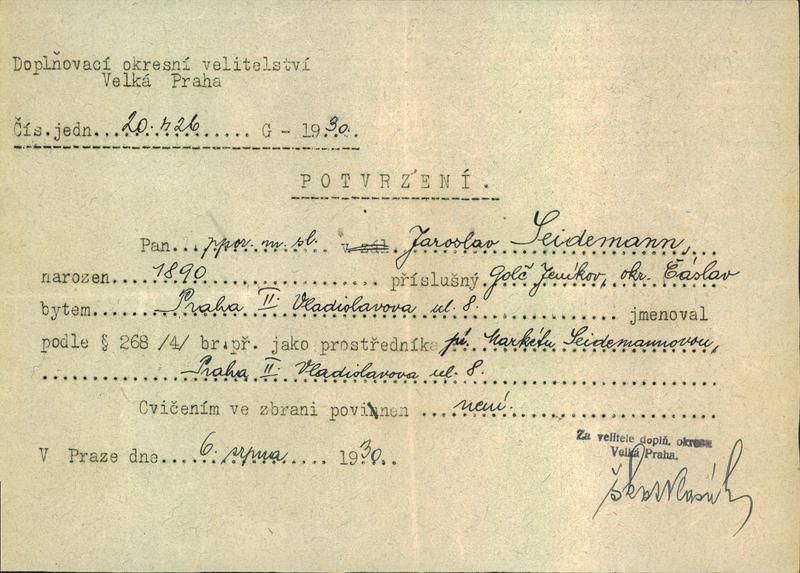 Doplňovací okresní velitelství
Velká Praha
Čís.jedn...20.726..... G - 1930.
POTVRZENÍ.
Pan...ppor. m. sl. v zál. Jaroslav Seidemann,
narozen....1890.................příslušný Golč Jeníkov, okr. Čáslav
bytem.......Praha II. Vladislavova ul. 8................ jmenoval
podle § 268 /4/ br.př. jako prostředníka pí. Markétu Seidemannovou,
Praha II. Vladislavova ul. 8.
Cvičením ve zbrani povinnen ....není.
V Praze dne....6. srpna..... 1930..
Za velitele doplň. okresu
Velká Praha.